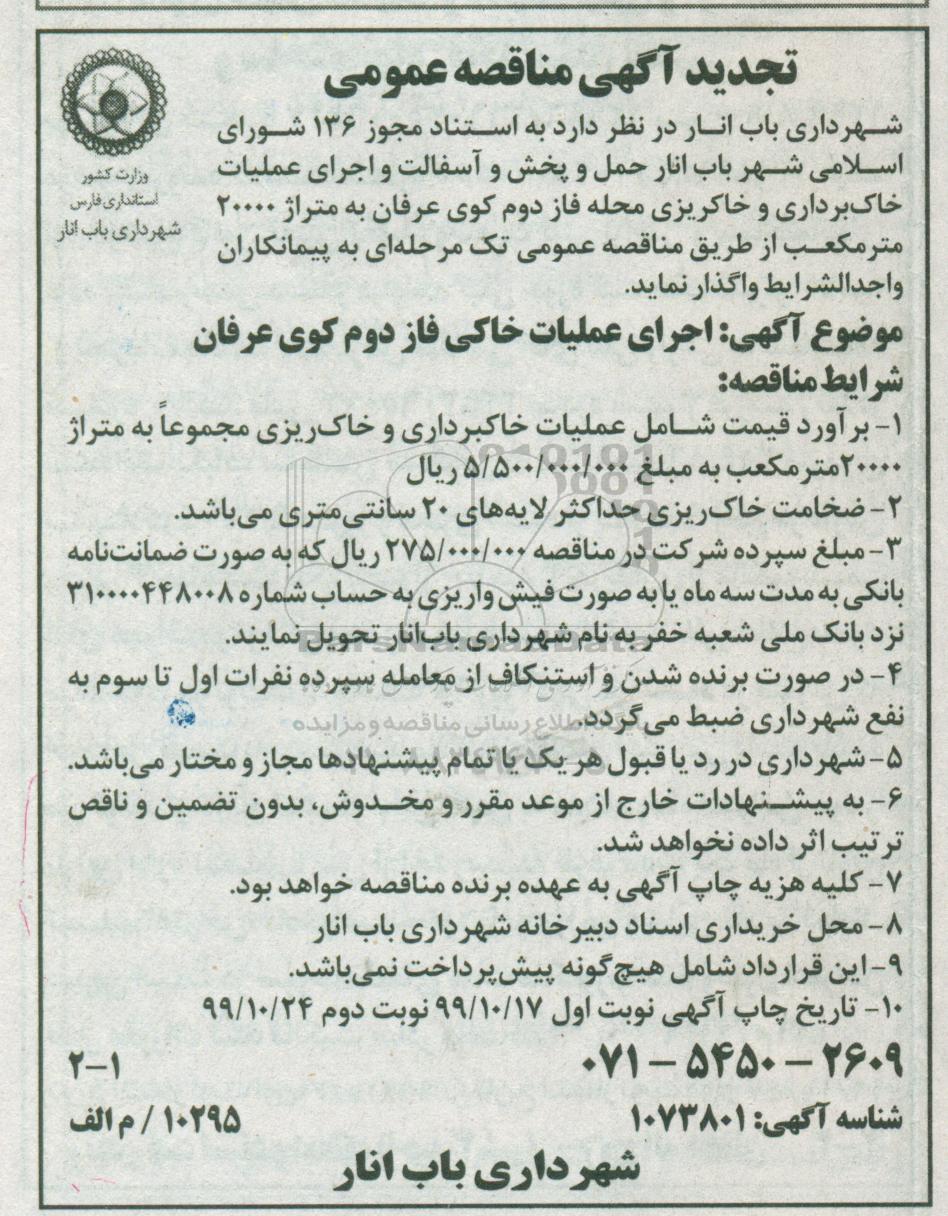 تجدید آگهی مناقصه عمومی
وزارت کشور
استانداری فارس
شهرداری باب انار
شهرداری باب انار در نظر دارد به استناد مجوز ۱۳۶ شورای
اسلامی شهر باب انار حمل و پخش و آسفالت و اجرای عملیات
خاک‌برداری و خاکریزی محله فاز دوم کوی عرفان به متراژ ۲۰۰۰۰
مترمکعب از طریق مناقصه عمومی تک مرحله‌ای به پیمانکاران
واجدالشرایط واگذار نماید.
موضوع آگهی: اجرای عملیات خاکی فاز دوم کوی عرفان
شرایط مناقصه:
۱- برآورد قیمت شامل عملیات خاکبرداری و خاک‌ریزی مجموعاً به متراژ
۲۰۰۰۰مترمکعب به مبلغ ۵/۵۰۰/۰۰۰/۰۰۰ ریال
۲- ضخامت خاک‌ریزی حداکثر لایه‌های ۲۰ سانتی‌متری می‌باشد.
۳- مبلغ سپرده شرکت در مناقصه ۲۷۵/۰۰۰/۰۰۰ ریال که به صورت ضمانت‌نامه
بانکی به مدت سه ماه یا به صورت فیش واریزی به حساب شماره ۳۱۰۰۰۰۴۴۸۰۰۸
نزد بانک ملی شعبه خفر به نام شهرداری باب‌انار تحویل نمایند.
ParsNamadData
۴- در صورت برنده شدن و استنکاف از معامله سپرده نفرات اول تا سوم به
نفع شهرداری ضبط می‌گردد.
پایگاه اطلاع رسانی مناقصه و مزایده
۵- شهرداری در رد یا قبول هر یک یا تمام پیشنهادها مجاز و مختار می‌باشد.
۶- به پیشنهادات خارج از موعد مقرر و مخدوش، بدون تضمین و ناقص
ترتیب اثر داده نخواهد شد.
۷- کلیه هزینه چاپ آگهی به عهده برنده مناقصه خواهد بود.
۸- محل خریداری اسناد دبیرخانه شهرداری باب انار
۹- این قرارداد شامل هیچ‌گونه پیش‌پرداخت نمی‌باشد.
۱۰- تاریخ چاپ آگهی نوبت اول ۹۹/۱۰/۱۷ نوبت دوم ۹۹/۱۰/۲۴
۰۷۱ – ۵۴۵۰ – ۲۶۰۹
۲-۱
شناسه آگهی: ۱۰۷۳۸۰۱
۱۰۲۹۵ / م الف
شهرداری باب انار